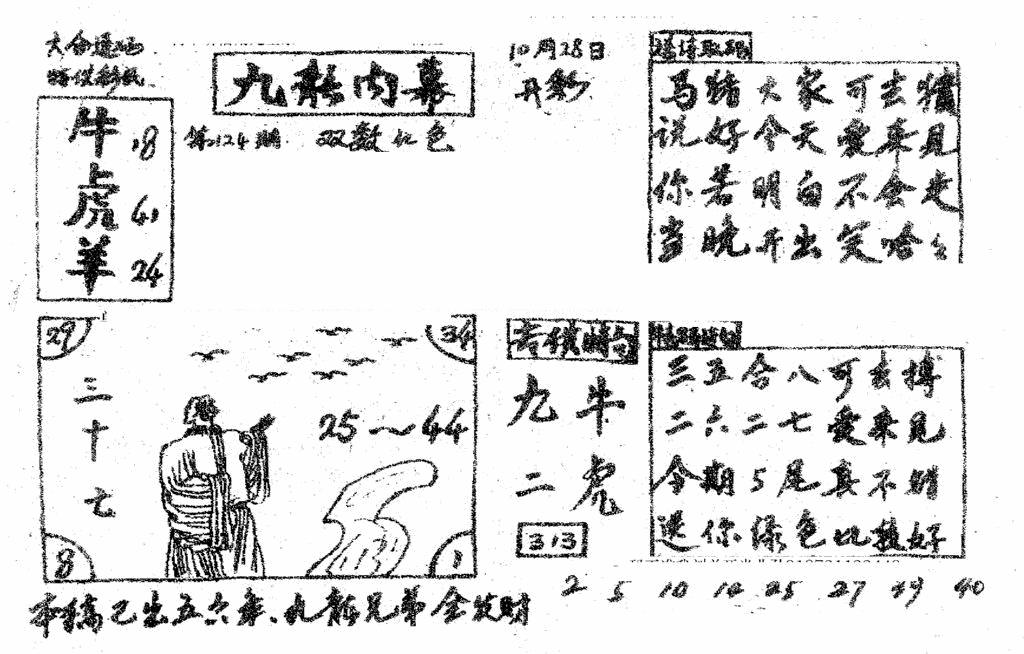 九龙内幕
第124期 双数红色
10月28日
开彩
牛 18
虎 41
羊 24
马猪大家可去猜
说好今天爱来见
你若明白不会走
当晚开出笑哈
29
34
三十七
25～44
8
1
九牛
二虎
313
三五合八可去搏
二六二七爱来见
今期5尾真不错
送你绿色比较好
2 5 10 14 25 27 49 40
本稿已出五六年、九龙兄弟全发财